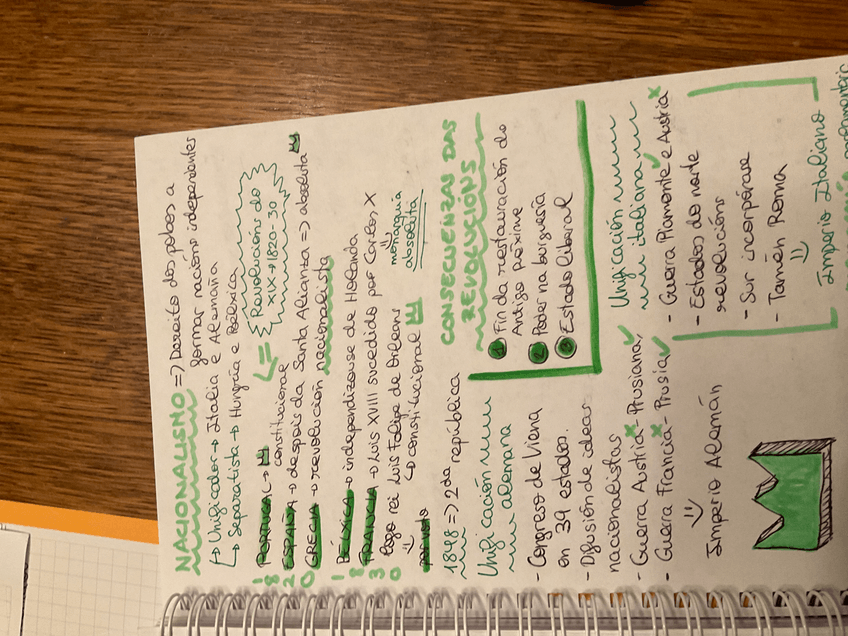 NACIONALISMO => Dereito dos pobos a
formar nacións independentes
↳ Unificador → Italia e Alemaña
↳ Separatista → Hungría e Bélxica
<= Revolucións do
XIX → 1820-30
1820
PORTUGAL →
constitucional
ESPAÑA → despois da Santa Alianza => absoluta
GRECIA → revolución nacionalista
1830
BÉLXICA → independizouse de Holanda
FRANCIA → Luis XVIII sucedido por Carlos X
monarquía
absoluta
logo rei Luis Felipe de Orleans
↳ constitucional
1848 => 2ª da república
CONSECUENZAS DAS
REVOLUCIÓNS
1 Fin da restauración do
Antigo Réxime
2 Poder na burguesía
3 Estado liberal
Unificación
alemana
- Congreso de Viena
en 39 estados.
- Difusión de ideas
nacionalistas
- Guerra Austria - Prusiana ✓
- Guerra Francia - Prusia ✓
Imperio Alemán
Unificación
italiana
- Guerra Piamonte e Austria
- Estados do norte
revolucións
- Sur incorpórase
- Tamén Roma
Imperio Italiano